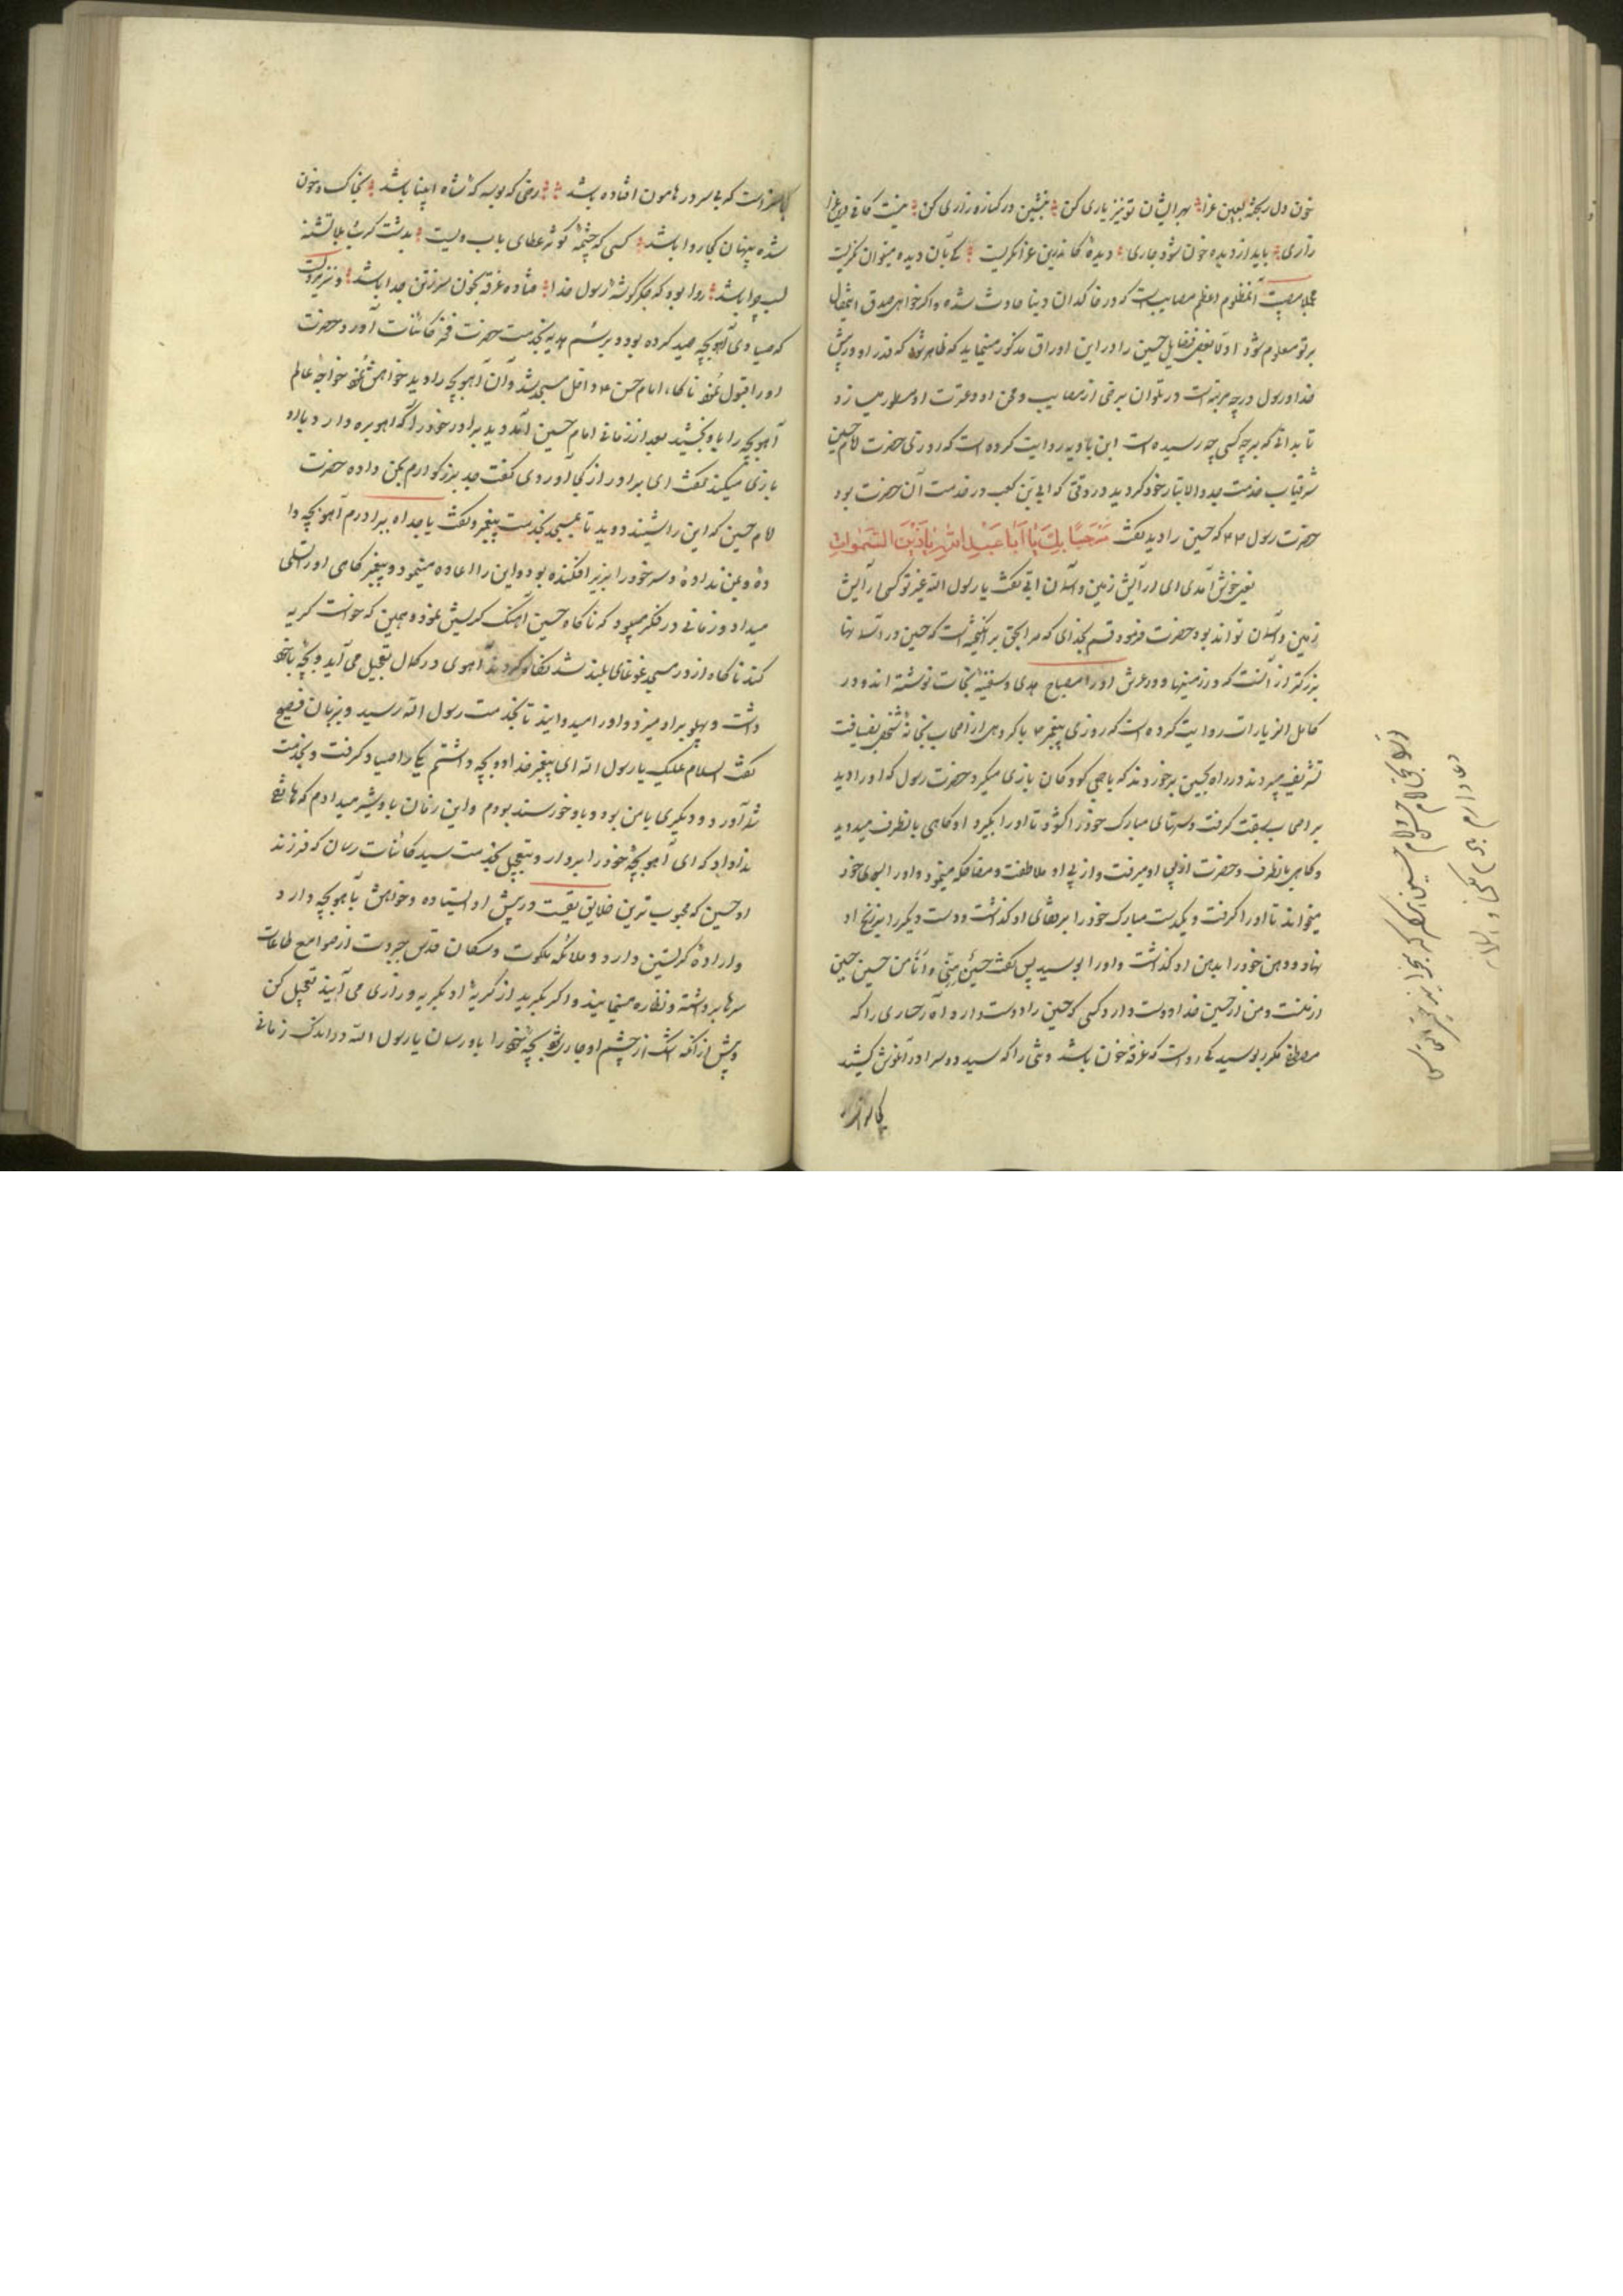 خون دل ریخته بعین عزا بهر ایشان تو نیز یاری کن بنشین در کناره زاری کن نیست کافی درین عزا
زاری باید از دیده خون شود جاری دیده کاندرین عزا نگریست کی بآن دیده میتوان نگریست
مجملا مصیبت آنمظلوم اعظم مصایب است که در خاکدان دنیا حادث شده و اگر خواهی صدق اینمقال
بر تو معلوم شود اولا بعضی فضایل حسین را در این اوراق مذکور مینماید که ظاهر شود که قدر او در پیش
خدا و رسول در چه مرتبه است در تلوان برخی از مصایب و محن او و عترت او مسطور میسازد
تا بدانی که بر چه کسی چه رسیده است ابن بابویه روایت کرده است که روزی حضرت امام حسین
شرفیاب خدمت جد والاتبار خود گردید در وقتی که ابی بن کعب در خدمت آن حضرت بود
حضرت رسول که حسین را دید گفت مَرْحَبًا بِكَ يَا اَبَا عَبْدِ اللهِ يَا زَيْنَ السَّمٰوَاتِ
یعنی خوش آمدی ای آرایش زمین و آسمان ابی گفت یا رسول الله غیر تو کسی آرایش
زمین و آسمان تواند بود حضرت فرمود قسم بخدای که مرا بحق برانگیخته است که حسین در آسمانها
بزرگتر از آنست که در زمینها و در عرش او را مصباح هدی و سفینه نجات نوشته اند و در
کامل الزیارات روایت کرده است که روزی پیغمبر با گروهی از اصحاب بخانه شخصی بضیافت
تشریف میبردند در راه بحسین برخوردند که با جمعی کودکان بازی میکرد حضرت رسول که او را دید
بر اصحاب سبقت گرفت و دستهای مبارک خود را گشود تا او را بگیرد او گاهی بانطرف میدوید
و گاهی باینطرف و حضرت از پی او میرفت و از پی او ملاطفت و مضاحکه مینمود و او را بسوی خود
میخواند تا او را گرفت و یکدست مبارک خود را بر قفای او گذاشت و دست دیگر را بر زنخ او
نهاد و دهن خود را بدهن او گذاشت و او را بوسید پس گفت حسینٌ منّی و انا من حسین حسین
از منست و من از حسین خدا دوست دارد کسی که حسین را دوست دارد آه رخساری را که
مصطفی مکرر بوسید کی رواست که غرقه خون باشد و تنی را که سید دو سرا در آغوش کشید
کی سزاوار
کی سزاوار است که بی سر در هامون افتاده باشد رخی که بوسه گه شاه انبیا باشد بخاک و خون
شده پنهان کجا روا باشد کسی که چشمه کوثر عطای باب ویست بدشت کربلا تشنه
لب چرا باشد روا بود که جگر گوشه رسول خدا فتاده غرقه بخون سر ز تن جدا باشد و نیز مرویست
که صیادی آهو بچه صید کرده بود و برسم هدیه بخدمت حضرت فخر کائنات آورد و حضرت
او را قبول نمود ناگاه امام حسن داخل مسجد شد و آن آهو بچه را دید خواهش نمود خواجه عالم
آهو بچه را باو بخشید بعد از زمانی امام حسین آمد دید برادر خود را که آهو بره دارد و با او
بازی میکند گفت ای برادر از کجا آوردی گفت جد بزرگوارم بمن داده حضرت
امام حسین که این را شنید دوید تا بمسجد بخدمت پیغمبر و گفت یا جداه برادرم آهو بچه دا
ده و بمن نداده و سر خود را بزیر افکنده بود و این را اعاده مینمود و پیغمبر گاهی او را تسلی
میداد و زمانی در فکر میبود که ناگاه حسین آهنگ گریستن نمود و همین که خواست گریه
کند ناگاه از در مسجد غوغای بلند شد نگاه کردند آهوی در کمال تعجیل می آید و بچه با خود
داشت و پهلو بر او میزد و او را میدواند تا بخدمت رسول الله رسید و بزبان فصیح
گفت السلام علیک یا رسول الله ای پیغمبر خدا دو بچه داشتم یکی را صیاد گرفت و بخدمت
شما آورد و دیگری با من بود و باو خورسند بودم و این زمان باو شیر میدادم که هاتفی
ندا داد که ای آهو بچه خود را بردار و بتعجیل بخدمت سید کائنات رسان که فرزند
او حسین که محبوب ترین خلایق است در پیش او ایستاده و خواهش بآهو بچه دارد
و اراده گریستن دارد و ملائکه ملکوت و سکان قدس جبروت از صوامع طاعات
سرها برداشته و نظاره مینمایند و اگر بگرید از گریه او بگریه و زاری می آیند تعجیل کن
و پیش از آنکه اشک از چشم او جاری شود بچه خود را باو رسان یا رسول الله در اندک زمانی